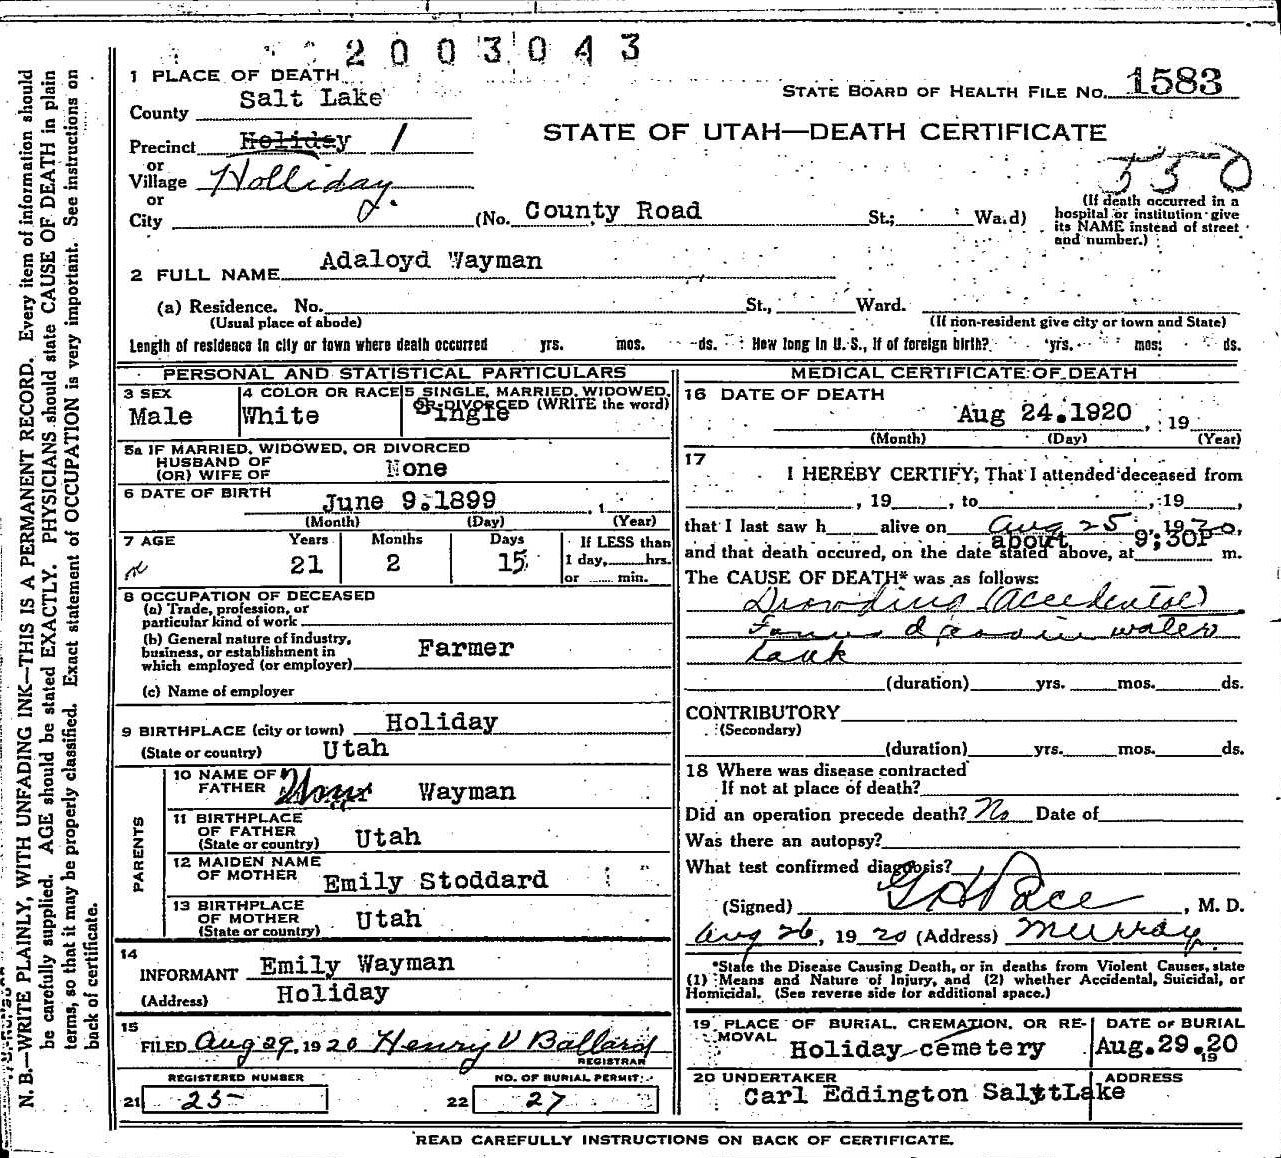 2003043
1 PLACE OF DEATH
STATE BOARD OF HEALTH FILE NO. 1583
County Salt Lake
STATE OF UTAH—DEATH CERTIFICATE
Precinct Holiday 1
or
Village Holliday.
550
or
City (No. County Road St.; Ward)
(If death occurred in a hospital or institution give its NAME instead of street and number.)
2 FULL NAME Adaloyd Wayman
(a) Residence. No. St., Ward.
(Usual place of abode) (If non-resident give city or town and State)
Length of residence in city or town where death occurred yrs. mos. ds. How long in U. S., if of foreign birth? yrs. mos. ds.
PERSONAL AND STATISTICAL PARTICULARS
3 SEX 4 COLOR OR RACE 5 SINGLE, MARRIED, WIDOWED, OR DIVORCED (WRITE the word)
Male White Single
5a IF MARRIED, WIDOWED, OR DIVORCED
HUSBAND OF
(OR) WIFE OF None
6 DATE OF BIRTH June 9.1899
(Month) (Day) (Year)
7 AGE Years Months Days If LESS than
21 2 15 1 day, hrs.
or min.
8 OCCUPATION OF DECEASED
(a) Trade, profession, or
particular kind of work
(b) General nature of industry,
business, or establishment in Farmer
which employed (or employer)
(c) Name of employer
9 BIRTHPLACE (city or town) Holiday
(State or country) Utah
PARENTS
10 NAME OF
FATHER Wayman
11 BIRTHPLACE
OF FATHER
(State or country) Utah
12 MAIDEN NAME
OF MOTHER Emily Stoddard
13 BIRTHPLACE
OF MOTHER
(State or country) Utah
14
INFORMANT Emily Wayman
(Address) Holiday
15
FILED Aug 29, 1920 Henry V Ballard
REGISTRAR
REGISTERED NUMBER NO. OF BURIAL PERMIT
21 25 22 27
MEDICAL CERTIFICATE OF DEATH
16 DATE OF DEATH
Aug 24.1920, 19
(Month) (Day) (Year)
17
I HEREBY CERTIFY, That I attended deceased from
, 19 , to , 19 ,
that I last saw h alive on Aug 25, 1920,
about 9;30P
and that death occured, on the date stated above, at m.
The CAUSE OF DEATH* was as follows:
Drowding (accidental)
water
tank
(duration) yrs. mos. ds.
CONTRIBUTORY
(Secondary)
(duration) yrs. mos. ds.
18 Where was disease contracted
If not at place of death?
Did an operation precede death? No Date of
Was there an autopsy?
What test confirmed diagnosis?
(Signed) Pace, M. D.
Aug 26, 1920 (Address) Murray
*State the Disease Causing Death, or in deaths from Violent Causes, state
(1) Means and Nature of Injury, and (2) whether Accidental, Suicidal, or
Homicidal. (See reverse side for additional space.)
19 PLACE OF BURIAL, CREMATION, OR REMOVAL DATE OF BURIAL
Holiday cemetery Aug.29.20
19
20 UNDERTAKER ADDRESS
Carl Eddington Salt Lake
READ CAREFULLY INSTRUCTIONS ON BACK OF CERTIFICATE.
N. B.—WRITE PLAINLY, WITH UNFADING INK—THIS IS A PERMANENT RECORD. Every item of information should
be carefully supplied. AGE should be stated EXACTLY. PHYSICIANS should state CAUSE OF DEATH in plain
terms, so that it may be properly classified. Exact statement of OCCUPATION is very important. See instructions on
back of certificate.